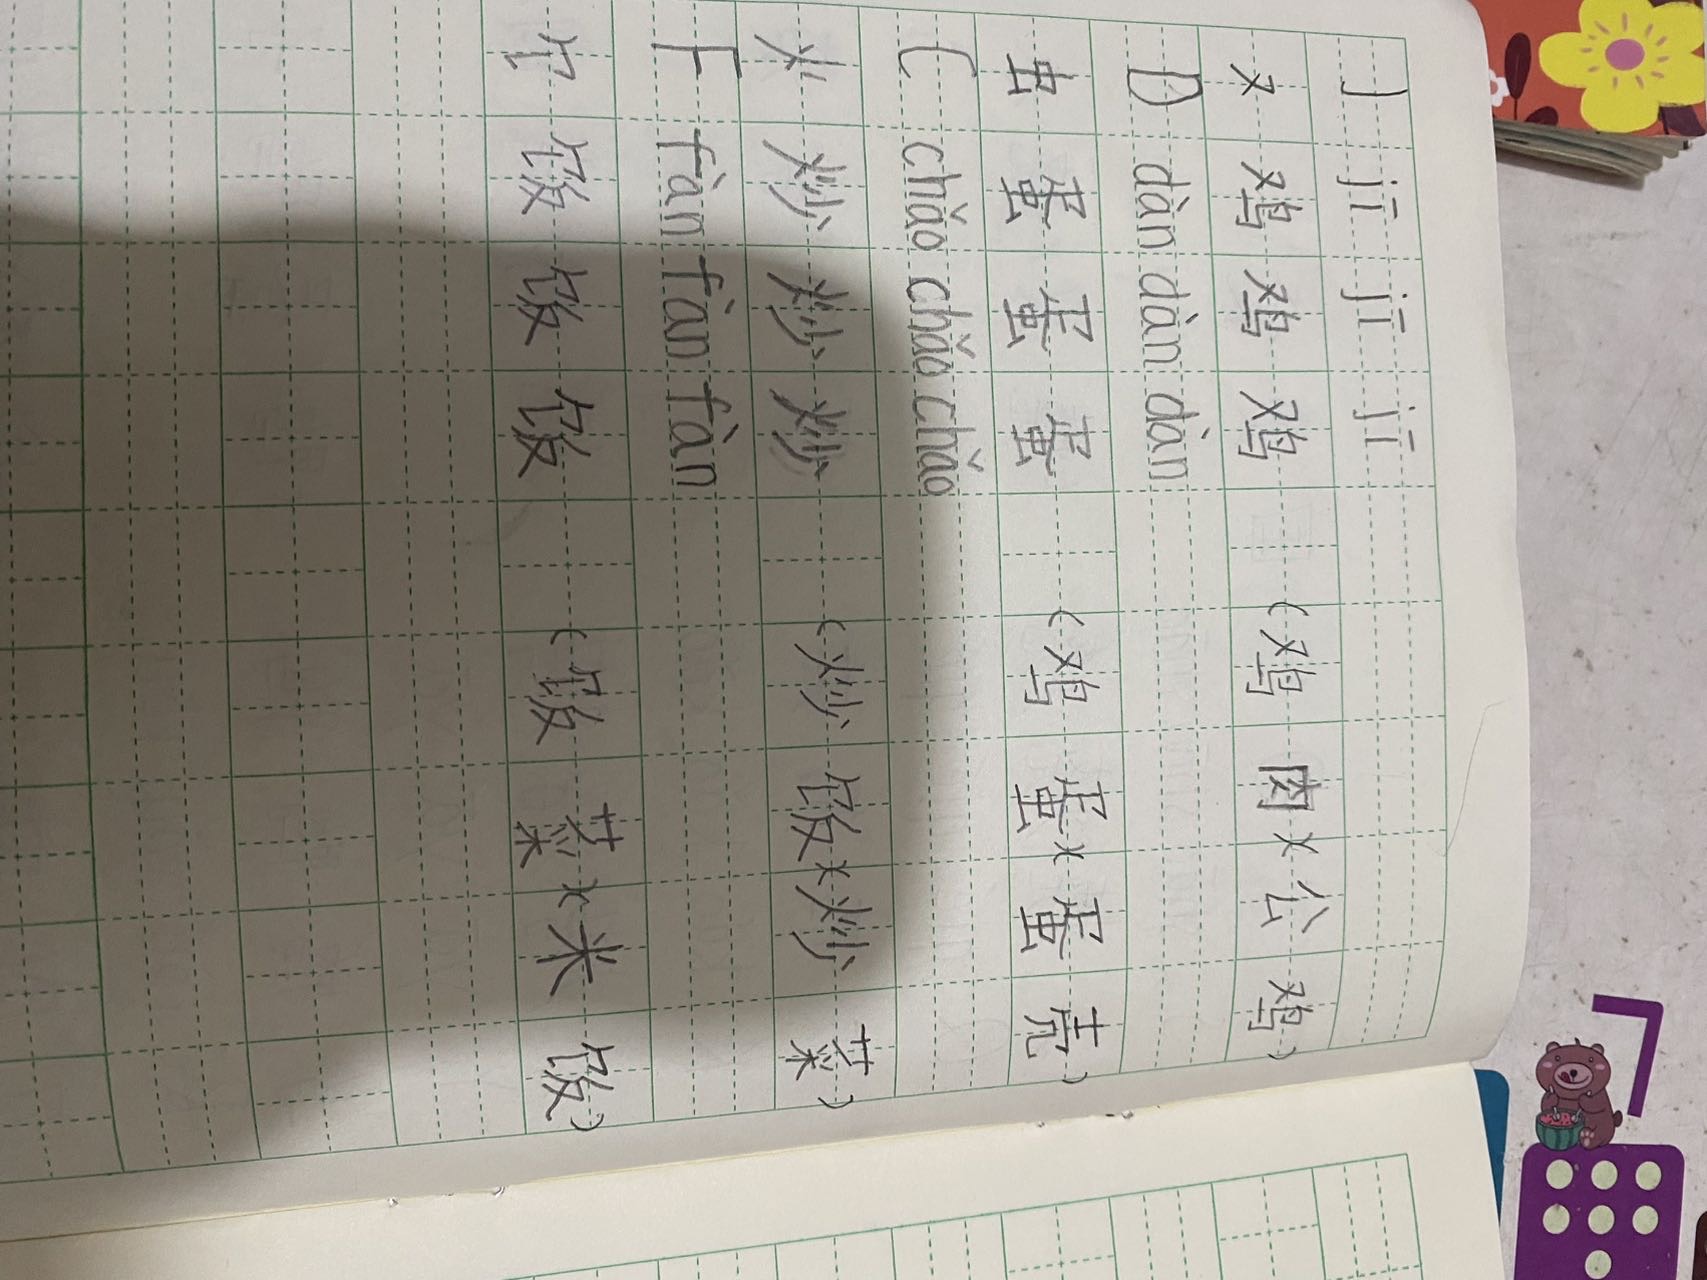 J jī jī jī
又 鸡 鸡 鸡 (鸡 肉)(公 鸡)
D dàn dàn dàn
虫 蛋 蛋 蛋 (鸡 蛋)(蛋 壳)
C chǎo chǎo chǎo
火 炒 炒 炒 (炒 饭)(炒 菜)
F fàn fàn fàn
饣 饭 饭 饭 (饭 菜)(米 饭)
7